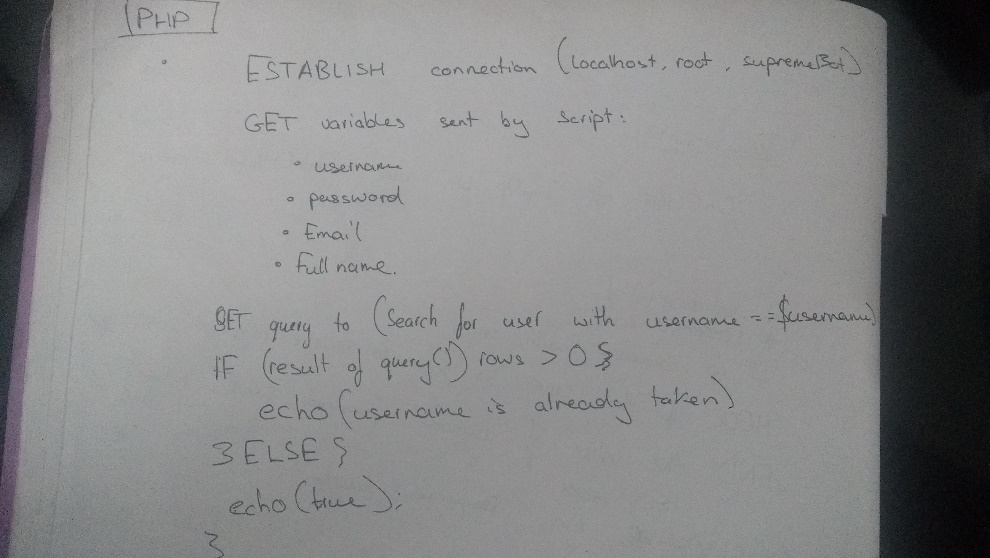 PHP
ESTABLISH connection (localhost, root, supremeBot)
GET variables sent by script:
• username
• password
• Email
• Full name.
SET query to (Search for user with username == $username)
IF (result of query()) rows > 0 {
echo (username is already taken)
} ELSE {
echo (true);
}